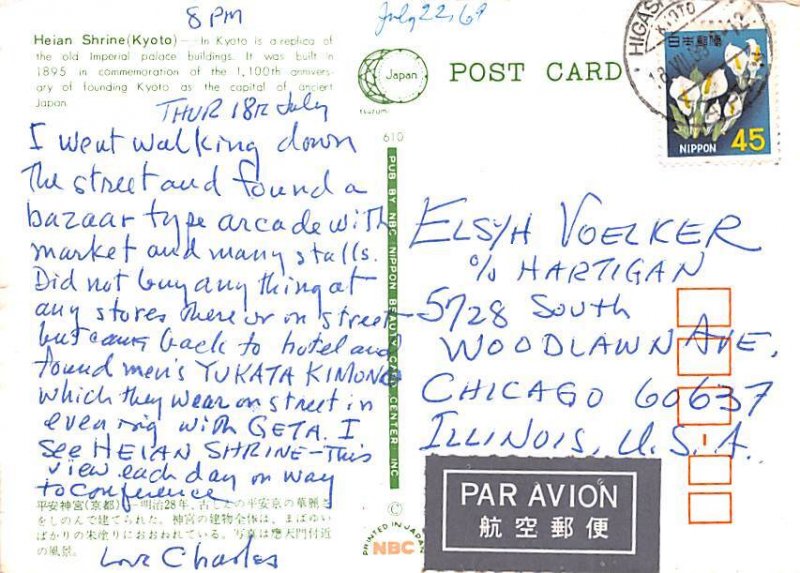 8 PM
July 22, 69
Heian Shrine (Kyoto) — In Kyoto is a replica of
the old Imperial palace buildings. It was built in
1895 in commemoration of the 1,100th annivers-
ary of founding Kyoto as the capital of ancient
Japan.
THUR 18th July
I went walking down
the street and found a
bazaar type arcade with
market and many stalls.
Did not buy any thing at
any stores there or on street
but came back to hotel and
found men's YUKATA KIMONO
which they wear on street in
evening with GETA. I
see HEIAN SHRINE - This
view each day on way
to conference
平安神宮(京都) 明治28年、古したの平安京の華麗さ
をしのんで建てられた。神宮の建物全体は、まばゆい
ばかりの朱塗りにおおわれている。写真は應天門付近
の風景。
Love Charles
Japan
tsuzumi
610
PUB BY NBC NIPPON BEAUTY CARD CENTER INC
©
PRINTED IN JAPAN
NBC
POST CARD
HIGAS
KYOTO
日本郵便
NIPPON 45
ELSYH VOELKER
c/o HARTIGAN
5728 South
WOODLAWN AVE.
CHICAGO 60637
ILLINOIS, U.S.A.
PAR AVION
航空郵便